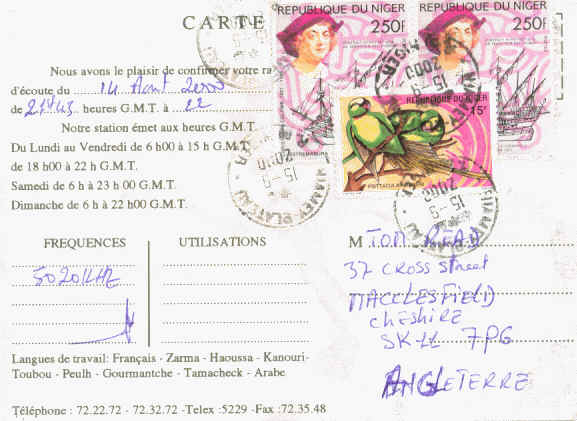 CARTE
REPUBLIQUE DU NIGER
250F
REPUBLIQUE DU NIGER
250F
REPUBLIQUE DU NIGER
15F
PSITTACULA KRAMERI
NIAMEY PLATEAU
15-9
2000
Nous avons le plaisir de confirmer votre ra
d'écoute du 14 Aout 2000
de 21H43 heures G.M.T. à 22
Notre station émet aux heures G.M.T.
Du Lundi au Vendredi de 6 h00 à 15 h G.M.T.
de 18 h00 à 22 h G.M.T.
Samedi de 6 h à 23 h 00 G.M.T.
Dimanche de 6 h à 22 h00 G.M.T.
FREQUENCES
UTILISATIONS
5020KHZ
M TOM READ
37 CROSS Street
MACCLESFIELD
CHESHIRE
SK11 7PG
ANGLETERRE
Langues de travail: Français - Zarma - Haoussa - Kanouri-
Toubou - Peulh - Gourmantche - Tamacheck - Arabe
Téléphone : 72.22.72 - 72.32.72 -Telex :5229 -Fax :72.35.48